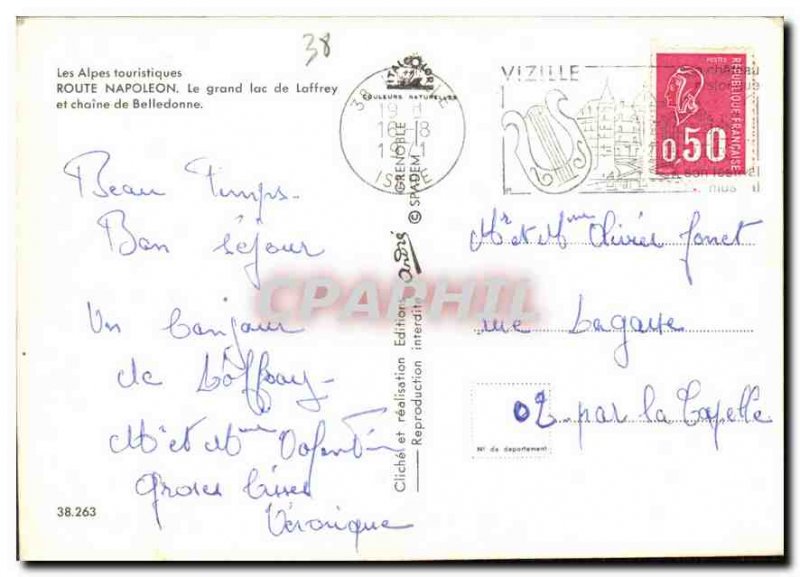 38
Les Alpes touristiques
ROUTE NAPOLEON. Le grand lac de Laffrey
et chaîne de Belledonne.
COULEURS NATURELLES
38
16-18
1971
ISERE
VIZILLE
château
son festival
POSTES
REPUBLIQUE FRANÇAISE
0,50
Beau Temps.
Bon séjour
Un bonjour
de Laffrey
Mr et Mme Valentin
Groses bises
Véronique
Cliché et réalisation Editions André GRENOBLE
Reproduction interdite © SPADEM
CPARPHIL
Mr et Mme Olivier
rue
02 par la Capelle
N° de département
38.263